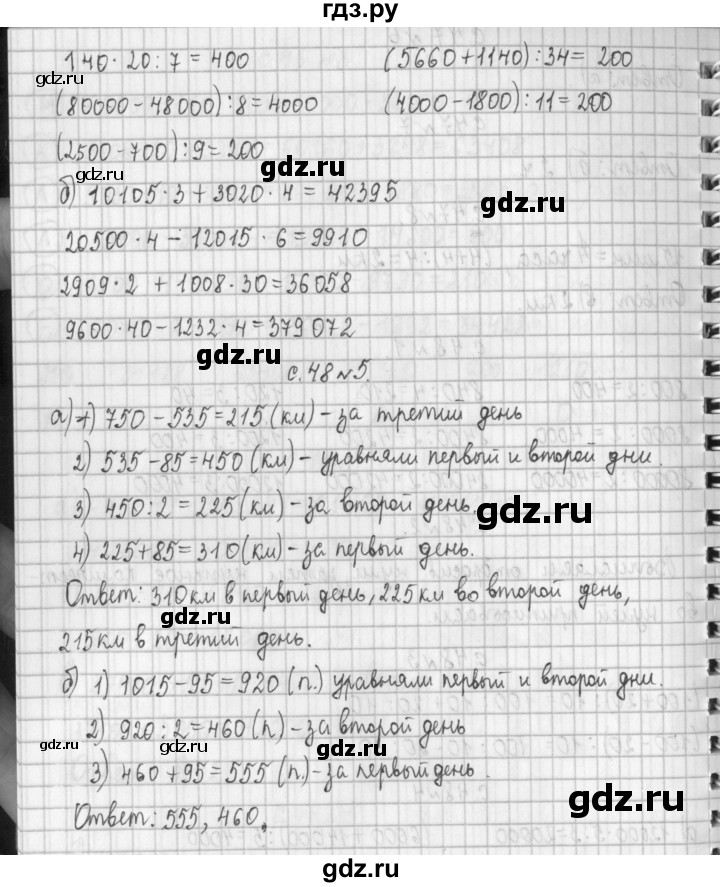 гдз.ру
140·20:7=400
(5660+1140):34=200
(80000-48000):8=4000
(4000-1800):11=200
(2500-700):9=200
gdz.ru
gdz.ru
gdz.ru
б) 10105·3+3020·4=42395
20500·4-12015·6=9910
2909·2+1008·30=36058
9600·40-1232·4=379072
gdz.ru
с.48 №5.
а) 1) 750-535=215(км)-за третий день
2) 535-85=450(км)-уравняли первый и второй дни.
3) 450:2=225(км)-за второй день.
gdz.ru
4) 225+85=310(км)-за первый день.
Ответ: 310км в первый день, 225км во второй день,
215км в третий день.
б) 1) 1015-95=920(п.) уравняли первый и второй дни.
2) 920:2=460(п)-за второй день
gdz.ru
gdz.ru
3) 460+95=555(п.)-за первый день.
gdz.ru
Ответ: 555, 460.
gdz.ru